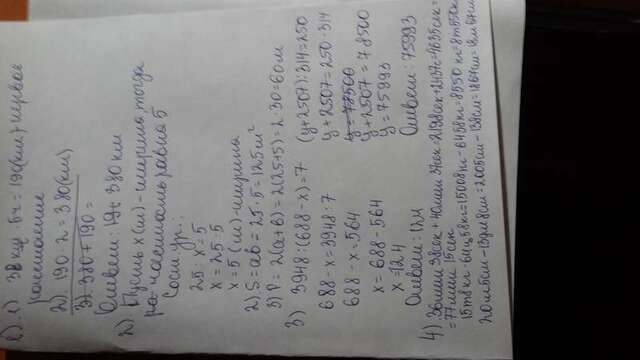 1) 1) 38 км/ч · 5ч = 190(км) - первое
расстояние
2) 190 · 2 = 380(км)
3) 380 + 190 =
Ответ: 380 км
2) Пусть x (м) - ширина, тогда
частность равна 5
Сост. ур.:
25 : x = 5
x = 25 · 5
x = 5 (м) - ширина
2) S = ab = 25 · 5 = 125 м²
3) P = 2(a+b) = 2(25+5) = 2 · 30 = 60 м
3) 3948 : (688 - x) = 7 (y + 2507) : 314 = 250
688 - x = 3948 : 7 y + 2507 = 250 · 314
688 - x = 564 y = 78500
y + 2507 = 78500
x = 688 - 564 y = 75993
x = 124
Ответ: 124 Ответ: 75993
4) 36мин 38сек + 40мин 37сек = 2198сек + 2437с = 4635сек =
= 77мин 15сек
15т8кг - 64ц58кг = 15008кг - 6458кг = 8550 кг = 8т550кг
20м5см - 13дм8см = 2005см - 138см = 1867см = 18м67см